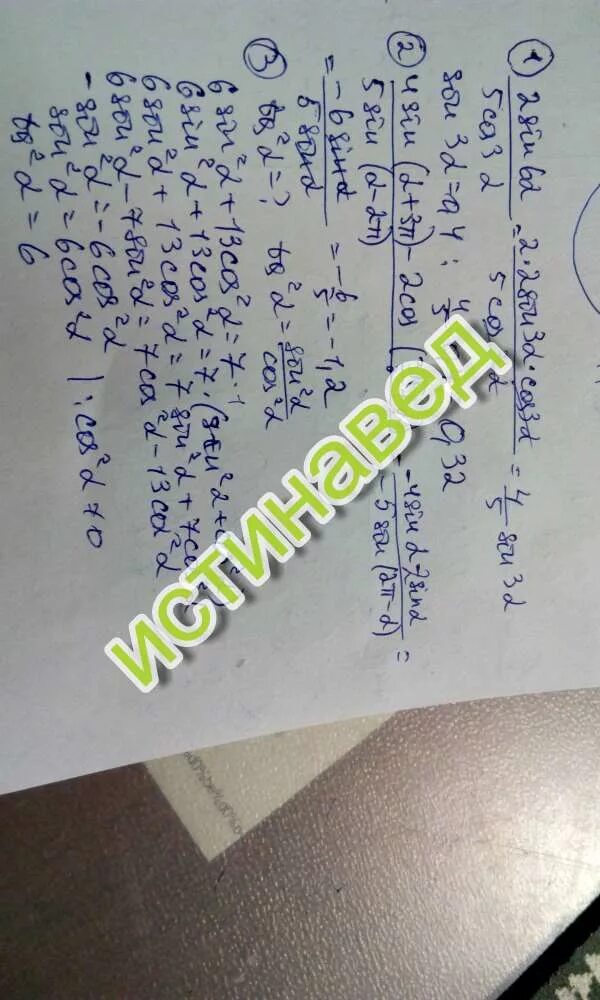 ① 2sin6α / 5cos3α = 2·2sin3α·cos3α / 5cos α = 4/5 sin3α
sin 3α = 0,4 ; 4/5 0,32
② 4sin(α+3π) - 2cos( / 5sin(α-2π) -4sinα-2sinα / -5sin(2π-α) =
= -6sinα / 5sinα = -6/5 = -1,2
③ tg²α = ? tg²α = sin²α / cos²α
6sin²α + 13cos²α = 7·1
6sin²α + 13cos²α = 7·(sin²α + cos²α)
6sin²α + 13cos²α = 7sin²α + 7cos²α
6sin²α - 7sin²α = 7cos²α - 13cos²α
- sin²α = -6cos²α
sin²α = 6cos²α | : cos²α ≠ 0
tg²α = 6
истинавед